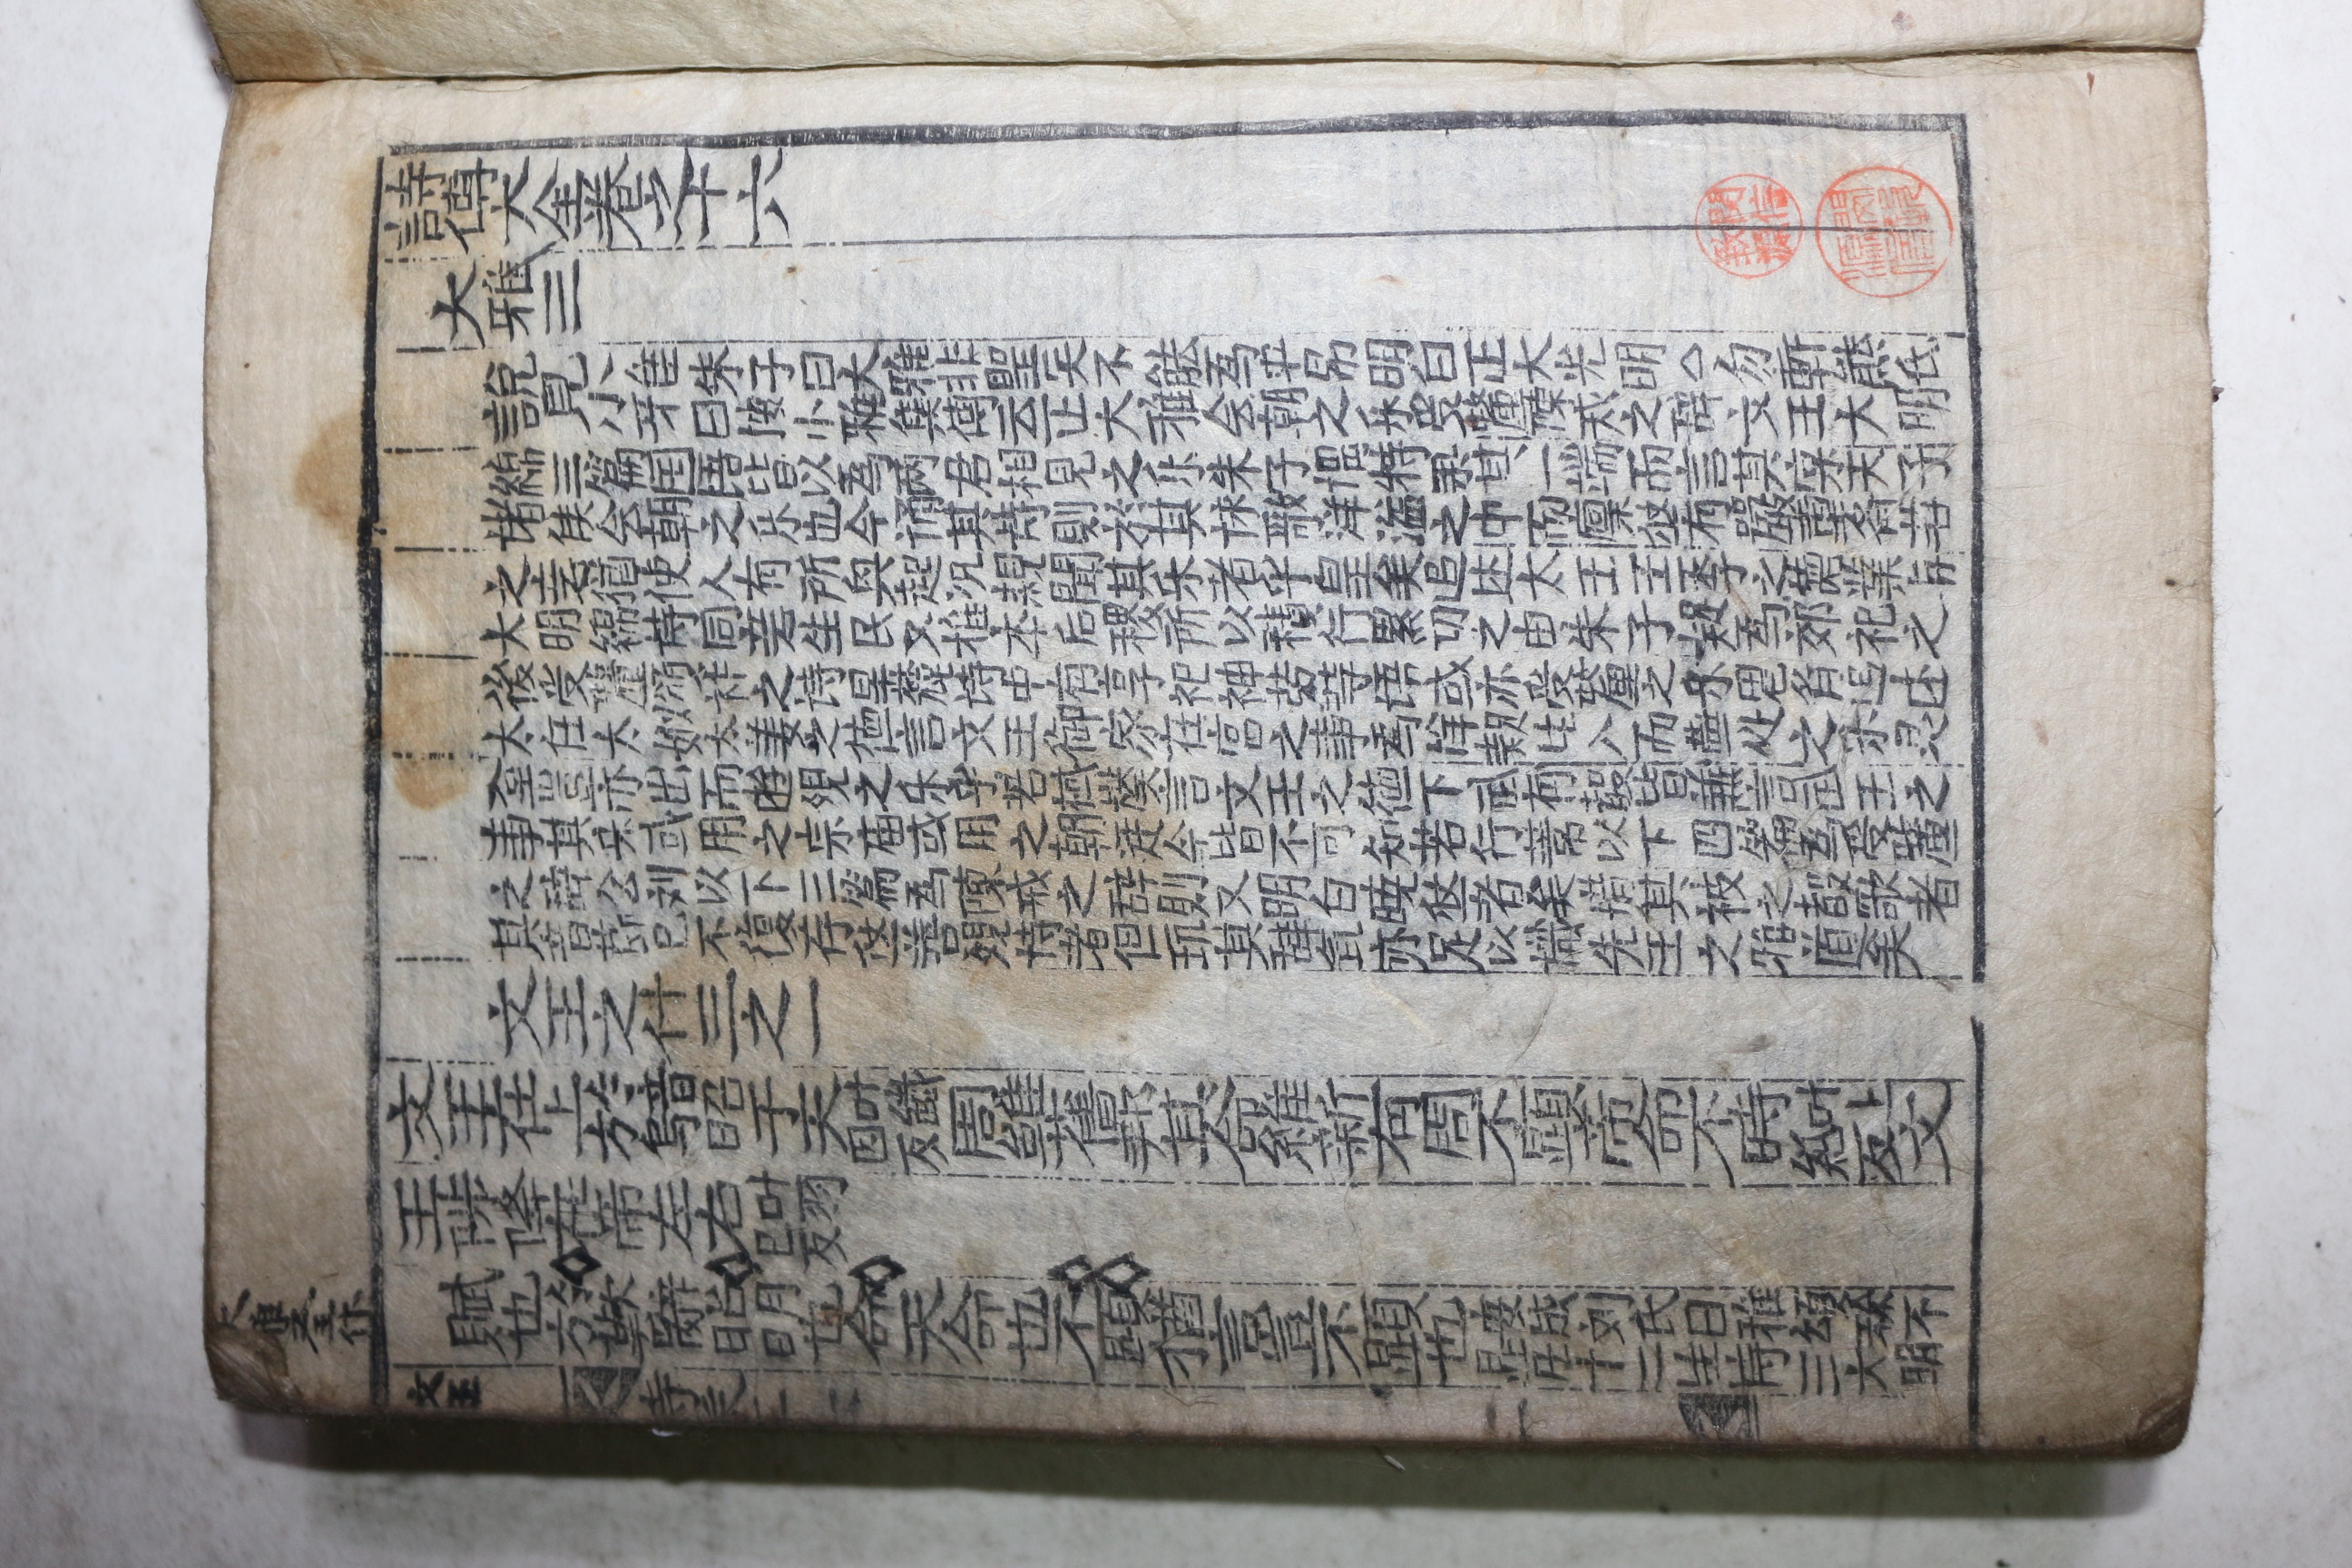 詩傳大全卷之十六
大雅三
說見小雅
朱子曰大雅非聖矣不能爲平易明白正大光明△勿軒熊氏
曰按小雅集傳云正大雅会朝之乐受釐陳戒之辞文王大明
綿三篇国语皆以爲两君相見之乐朱子惧特举其一端而言其实天子
堵侯会朝之乐也今诵其詩則於其咏歌洋溢之中而凛然有嚴肅者若
之意猶使人有所興起况親聞其乐者乎皇矣追述太王王季之德業与
大明綿詩同意生民又推本后稷所以積行累功之由朱子疑爲郊祀之
後受釐頒祚之诗旱麓诗中有享祀神劳等语或亦受釐之乐思斉追述
太任太姒太姜之德言文王御家在宫之事爲详疑此八而燕処之乐灵
至豈亦出而遊覌之乐乎若棫樸言文王之德下武有聲皆兼言武王之
事其乐或用之宗庙或用之朝廷今皆不可知若行葦以下四篇爲受釐
之辞公刘以下三篇爲陳戒之辞則又明白暁然者矣惜其被之聲歌者
其音节已不復存然善覌詩者但玩其辞気亦足以識先王之雅道矣
文王之什三之一
文王在上於音烏昭于天叶鐵因反周雖舊邦其命維新有周不顯帝命不時叶上紙反文
王陟降在帝左右叶羽已反
賦也於歎辭昭明也命天命也不顯猶言豈不顯也安成刘氏曰雅頌稱不
顯凡十二生詩三大明
文王
大雅文王什